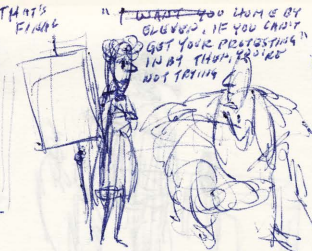 THAT'S
FINAL
"I WANT YOU HOME BY
ELEVEN, IF YOU CAN'T
GET YOUR PROTESTING"
IN BY THEN, YOU'RE
NOT TRYING